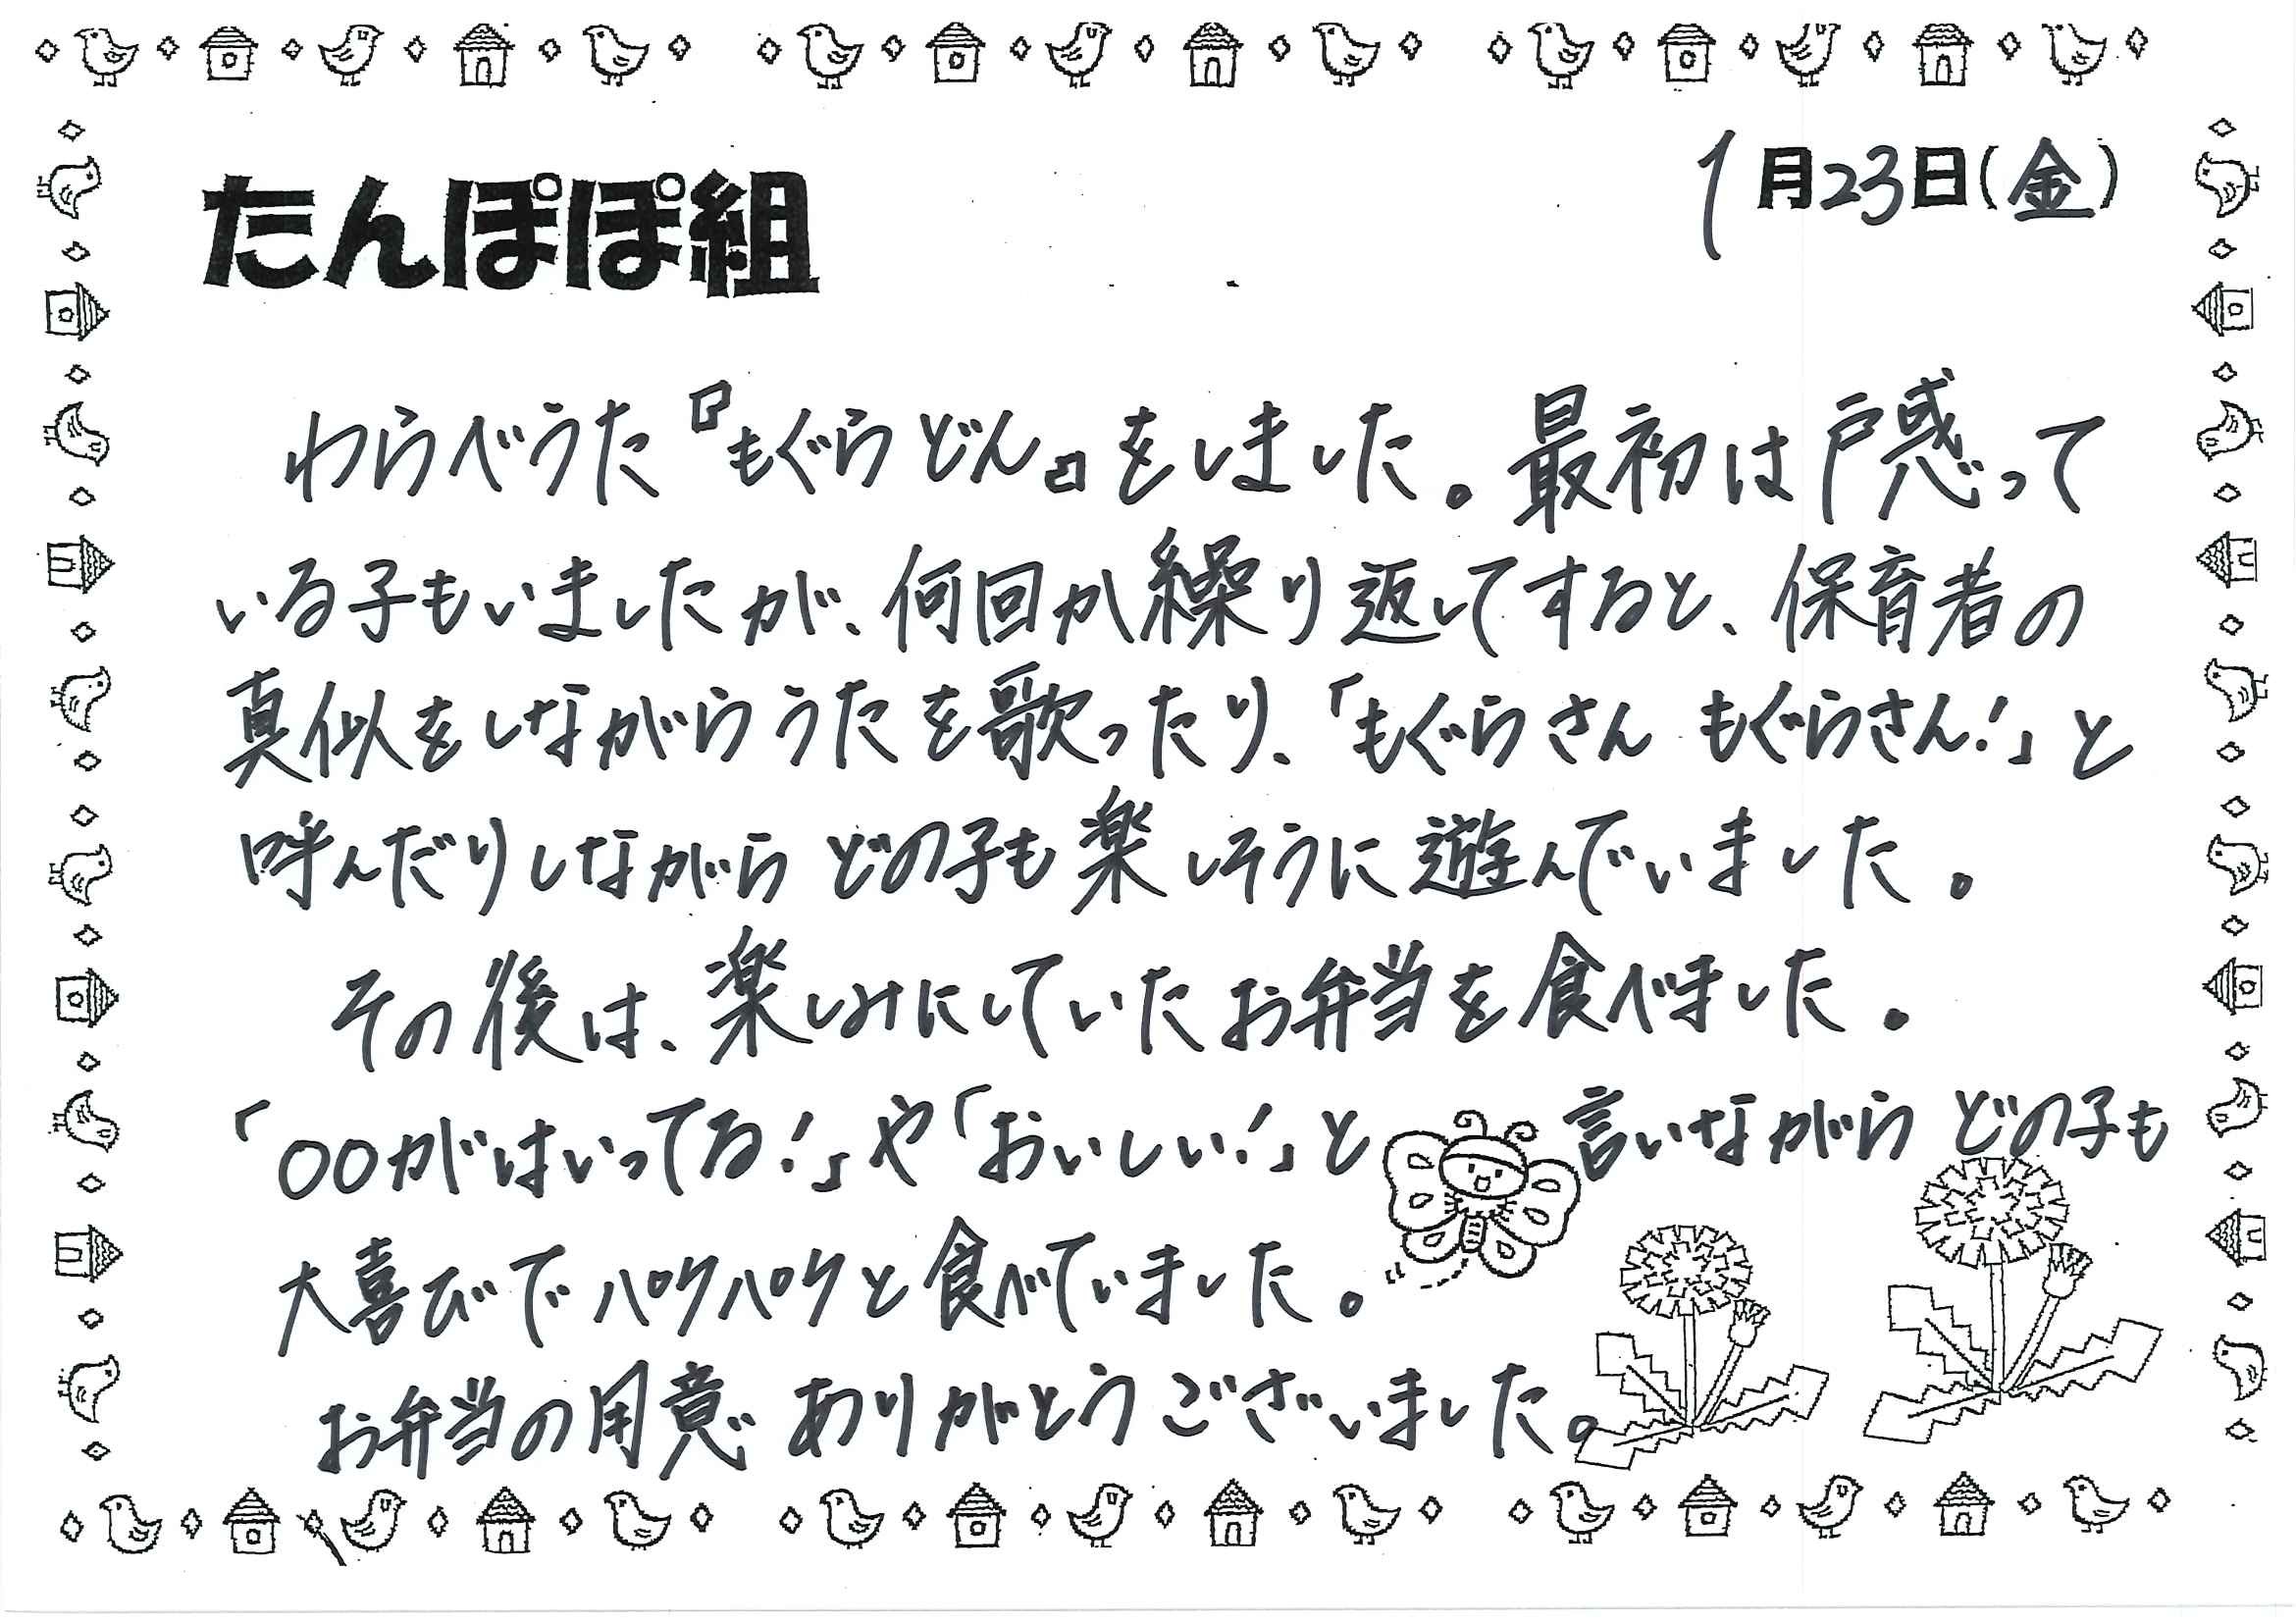 たんぽぽ組
1月23日(金)
わらべうた『もぐらどん』をしました。最初は戸惑って
いる子もいましたが、何回か繰り返してすると、保育者の
真似をしながらうたを歌ったり、「もぐらさん もぐらさん!」と
呼んだりしながら どの子も楽しそうに遊んでいました。
その後は、楽しみにしていたお弁当を食べました。
「○○がはいってる!」や「おいしい!」と 言いながら どの子も
大喜びでパクパクと食べていました。
お弁当の用意 ありがとうございました。